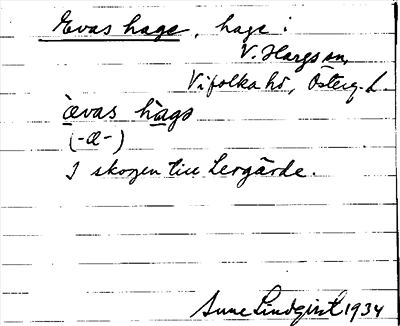 Evas hage, hage i
V. Hargs sn,
Vifolka hd, Österg. L.
ævas hags
(-æ-)
I skogen till Lergärde.
Sune Lindqvist 1934